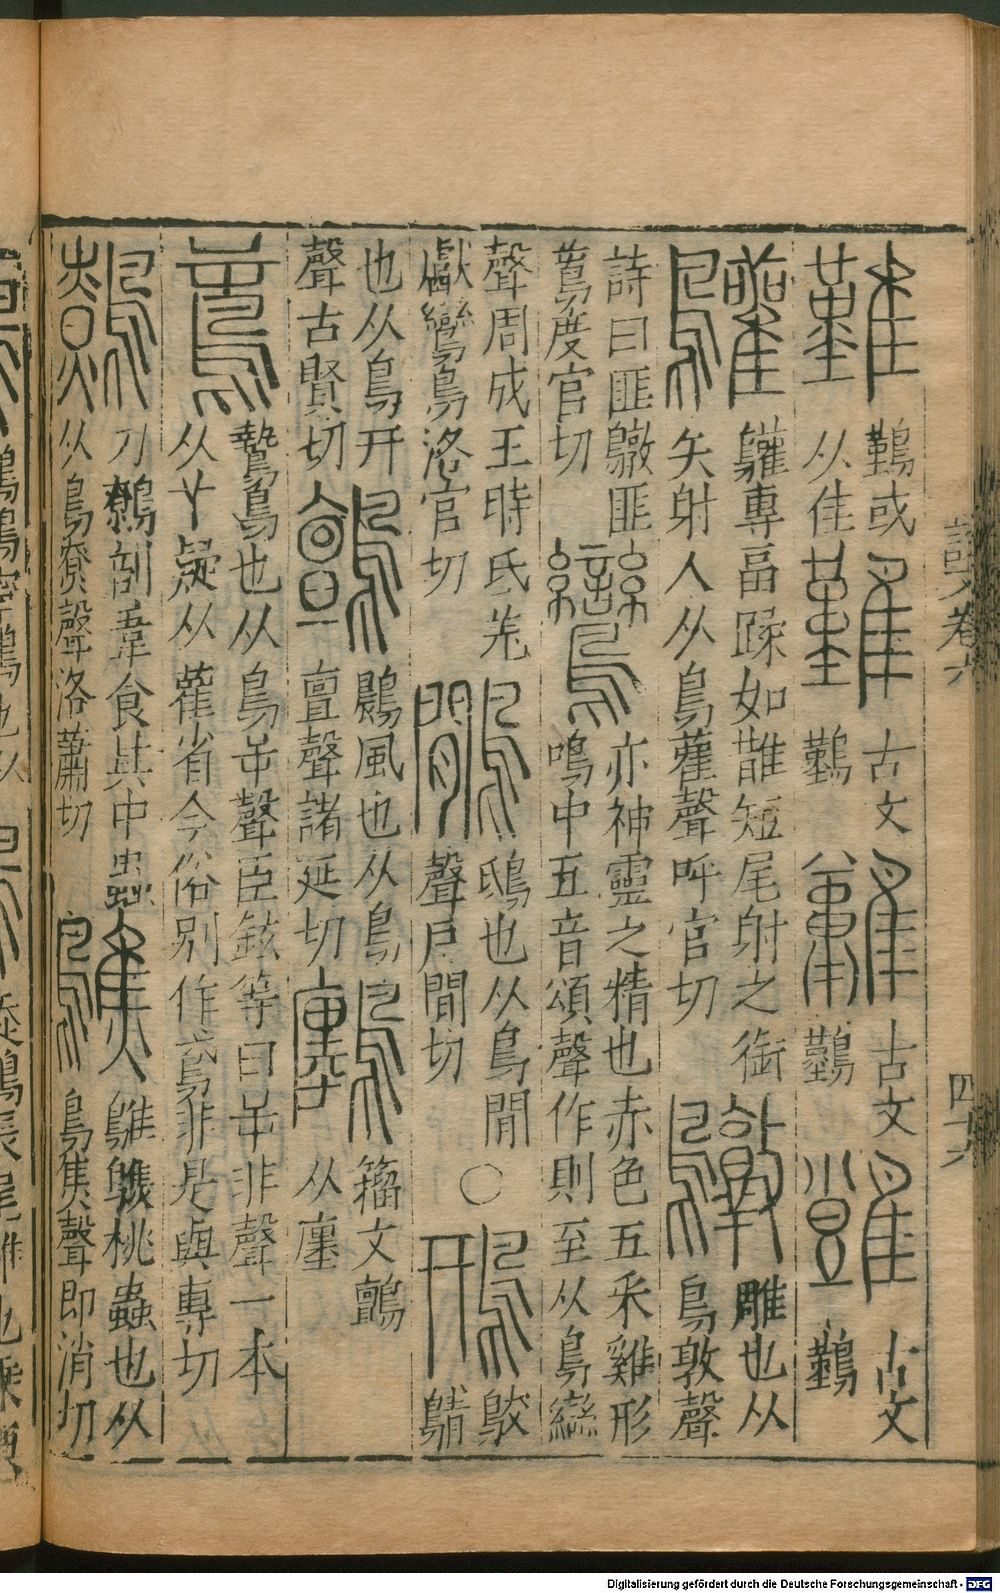 難 鷬或
从隹
古文
鷬
古文
鷬
古文
鷬
鸛 鸛專畐蹂如䧿短尾射之銜
矢射人从鳥雚聲呼官切
鷻 雕也从
鳥敦聲
詩曰匪鷻匪
䳒度官切
鸞 亦神靈之精也赤色五采雞形
鳴中五音頌聲作則至从鳥䜌
聲周成王時氐羌
獻鸞鳥洛官切
鷳 鴟也从鳥閒
聲戶間切
○
鳽 鵁
鶄
也从鳥幵
聲古賢切
鸇 鷐風也从鳥
亶聲諸延切
籒文鸇
从廛
鷙鳥也从鳥屰聲臣鉉等曰屰非聲一本
从丫疑从雚省今俗別作鳶非是與專切
鷯 刀鷯剖葦食其中蟲
从鳥尞聲洛蕭切
鷦 鷦䳟桃蟲也从
鳥焦聲即消切
說文卷六
四十六
Digitalisierung gefördert durch die Deutsche Forschungsgemeinschaft - DFG